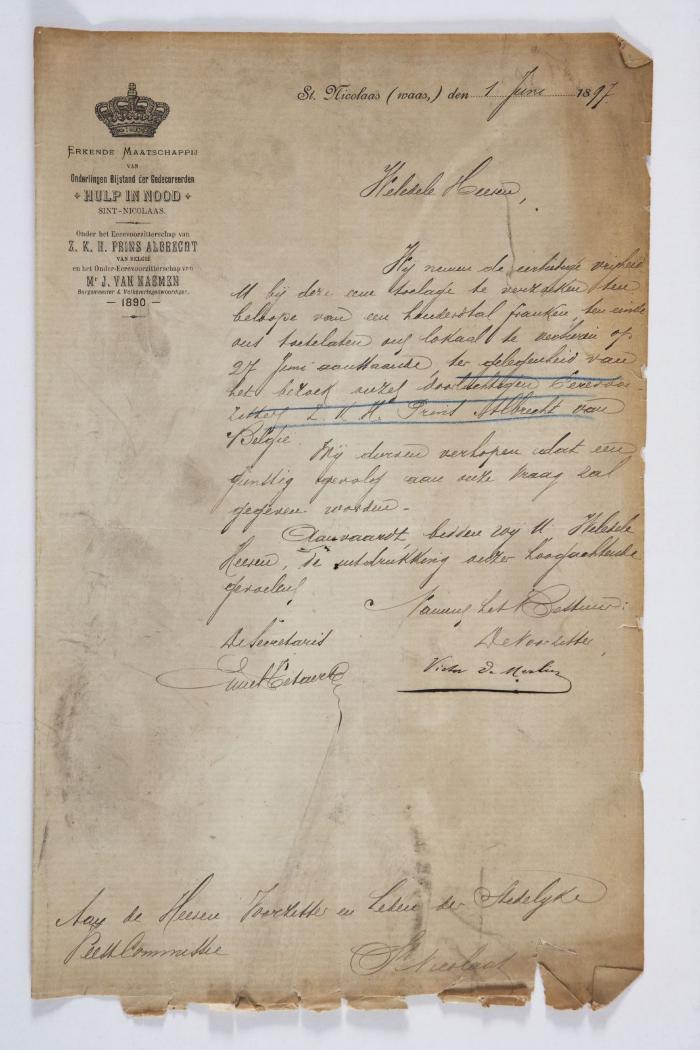 St. Nicolaas (waas,) den 1 Juni 1897
ERKENDE MAATSCHAPPIJ
VAN
Onderlingen Bijstand der Gedecoreerden
HULP IN NOOD
SINT-NICOLAAS.
Onder het Eerevoorzitterschap van
Z. K. H. PRINS ALBRECHT
VAN BELGIË
en het Onder-Eerevoorzitterschap van
Mr J. VAN NAEMEN
Burgemeester & Volksvertegenwoordiger.
1890
Weledele Heeren,
Wij nemen de eerbiedige vrijheid
U bij deze eene toelage te verzoeken ten
beloope van een honderdtal franken, ten einde
ons toetelaten ons lokaal te versieren op
27 Juni aanstaande, ter gelegenheid van
het bezoek onzes doorluchtigen Eerevoor-
zitters Z. K. H. Prins Albrecht van
België.
Wij durven verhopen dat een
gunstig gevolg aan onze vraag zal
gegeven worden.
Aanvaardt, bidden wij U, Weledele
Heeren, de uitdrukking onzer hoogachtende
gevoelens
Namens het Bestuur:
De Secretaris
De Voorzitter,
Victor De
Aan de Heeren Voorzitter en Leden der Stedelyke
Feest Commissie
St Nicolaas